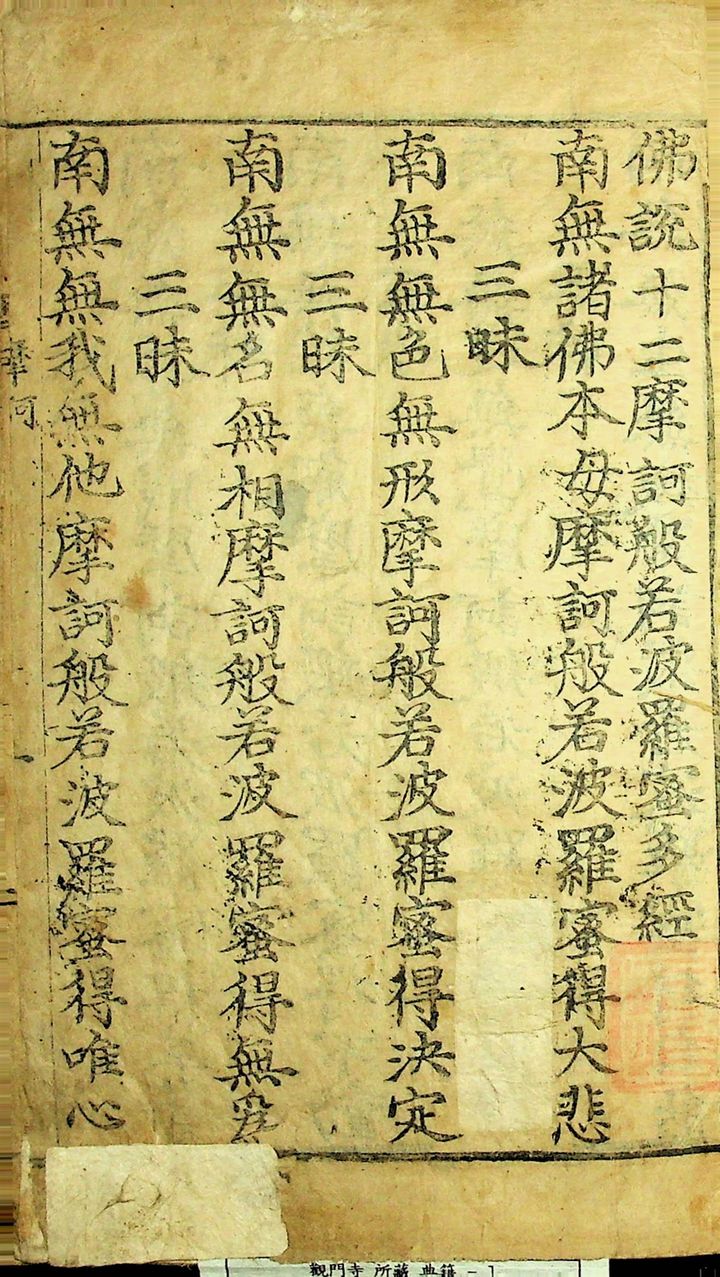 佛說十二摩訶般若波羅蜜多經
南無諸佛本母摩訶般若波羅蜜得大悲
三昧
南無無色無形摩訶般若波羅蜜得決定
三昧
南無無名無相摩訶般若波羅蜜得無爲
三昧
南無無我無他摩訶般若波羅蜜得唯心
摩訶
觀門寺 所藏 典籍 - 1